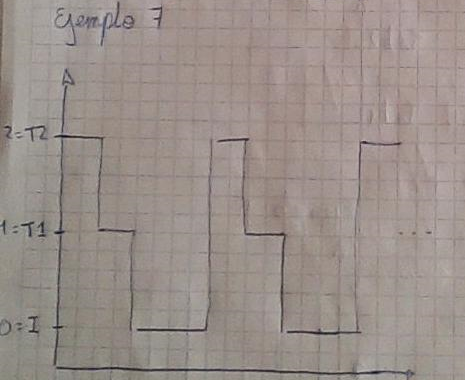 Ejemplo 7
2=T2
1=T1
...
0=I